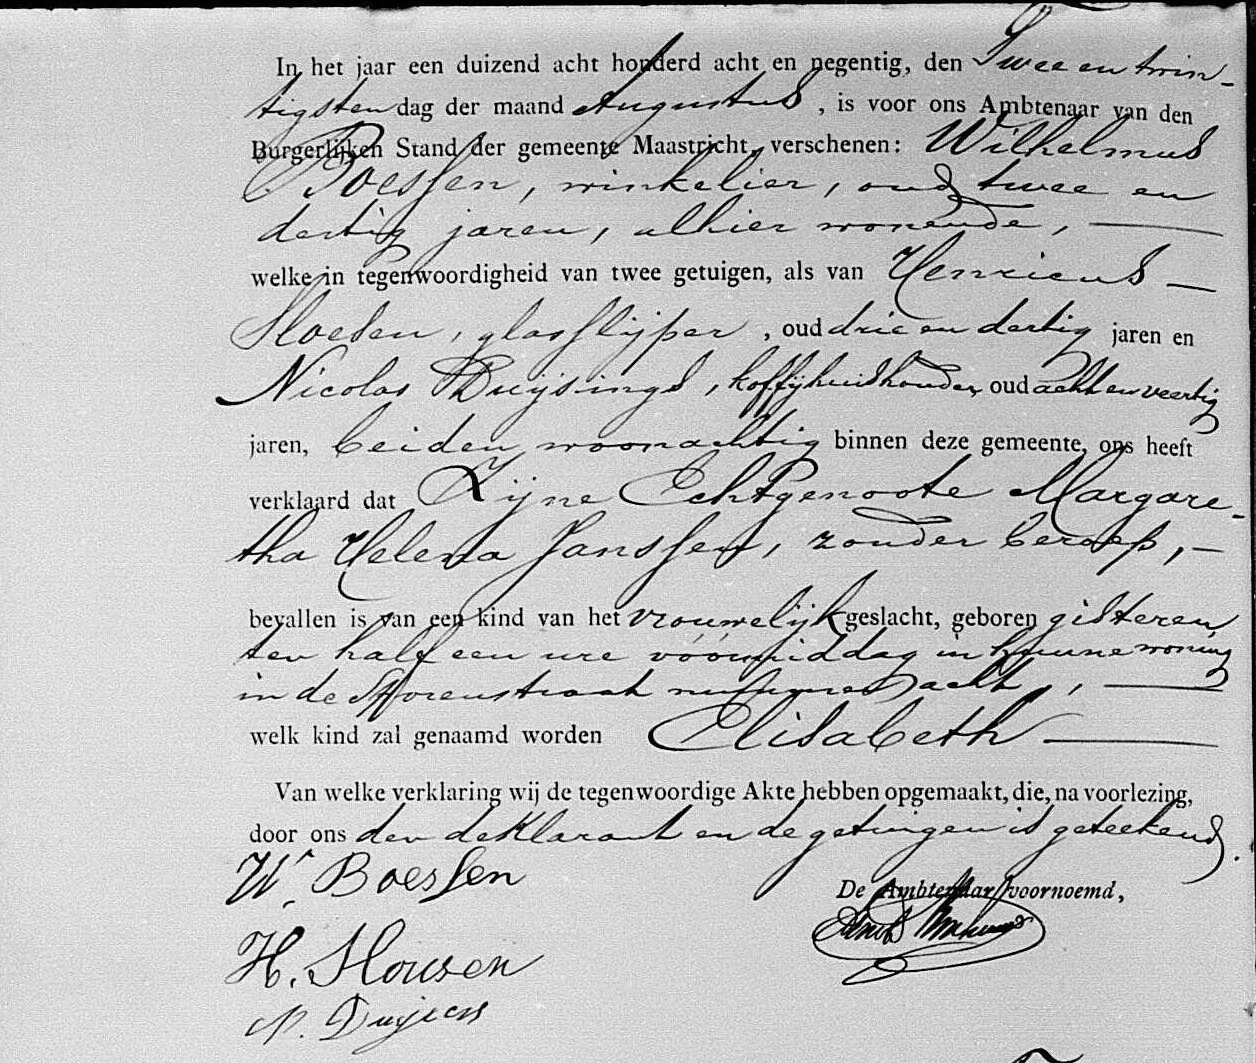 In het jaar een duizend acht honderd acht en negentig, den Twee en twin-
tigsten dag der maand Augustus, is voor ons Ambtenaar van den
Burgerlijken Stand der gemeente Maastricht, verschenen: Wilhelmus
Boessen, winkelier, oud twee en
dertig jaren, alhier wonende,
welke in tegenwoordigheid van twee getuigen, als van Henricus
glasslijper, oud drie en dertig jaren en
Nicolas Duijsings, koffijhuishouder, oud acht en veertig
jaren, beiden woonachtig binnen deze gemeente, ons heeft
verklaard dat Zijne Echtgenoote Margare-
tha Helena Janssen, zonder beroep,
bevallen is van een kind van het vrouwelijk geslacht, geboren gisteren
ten half een ure vóórmiddag in hunne woning
in de nummer acht,
welk kind zal genaamd worden Elisabeth
Van welke verklaring wij de tegenwoordige Akte hebben opgemaakt, die, na voorlezing,
door ons den deklarant en de getuigen is geteekend.
Wm. Boessen
De Ambtenaar voornoemd,
H.
N.